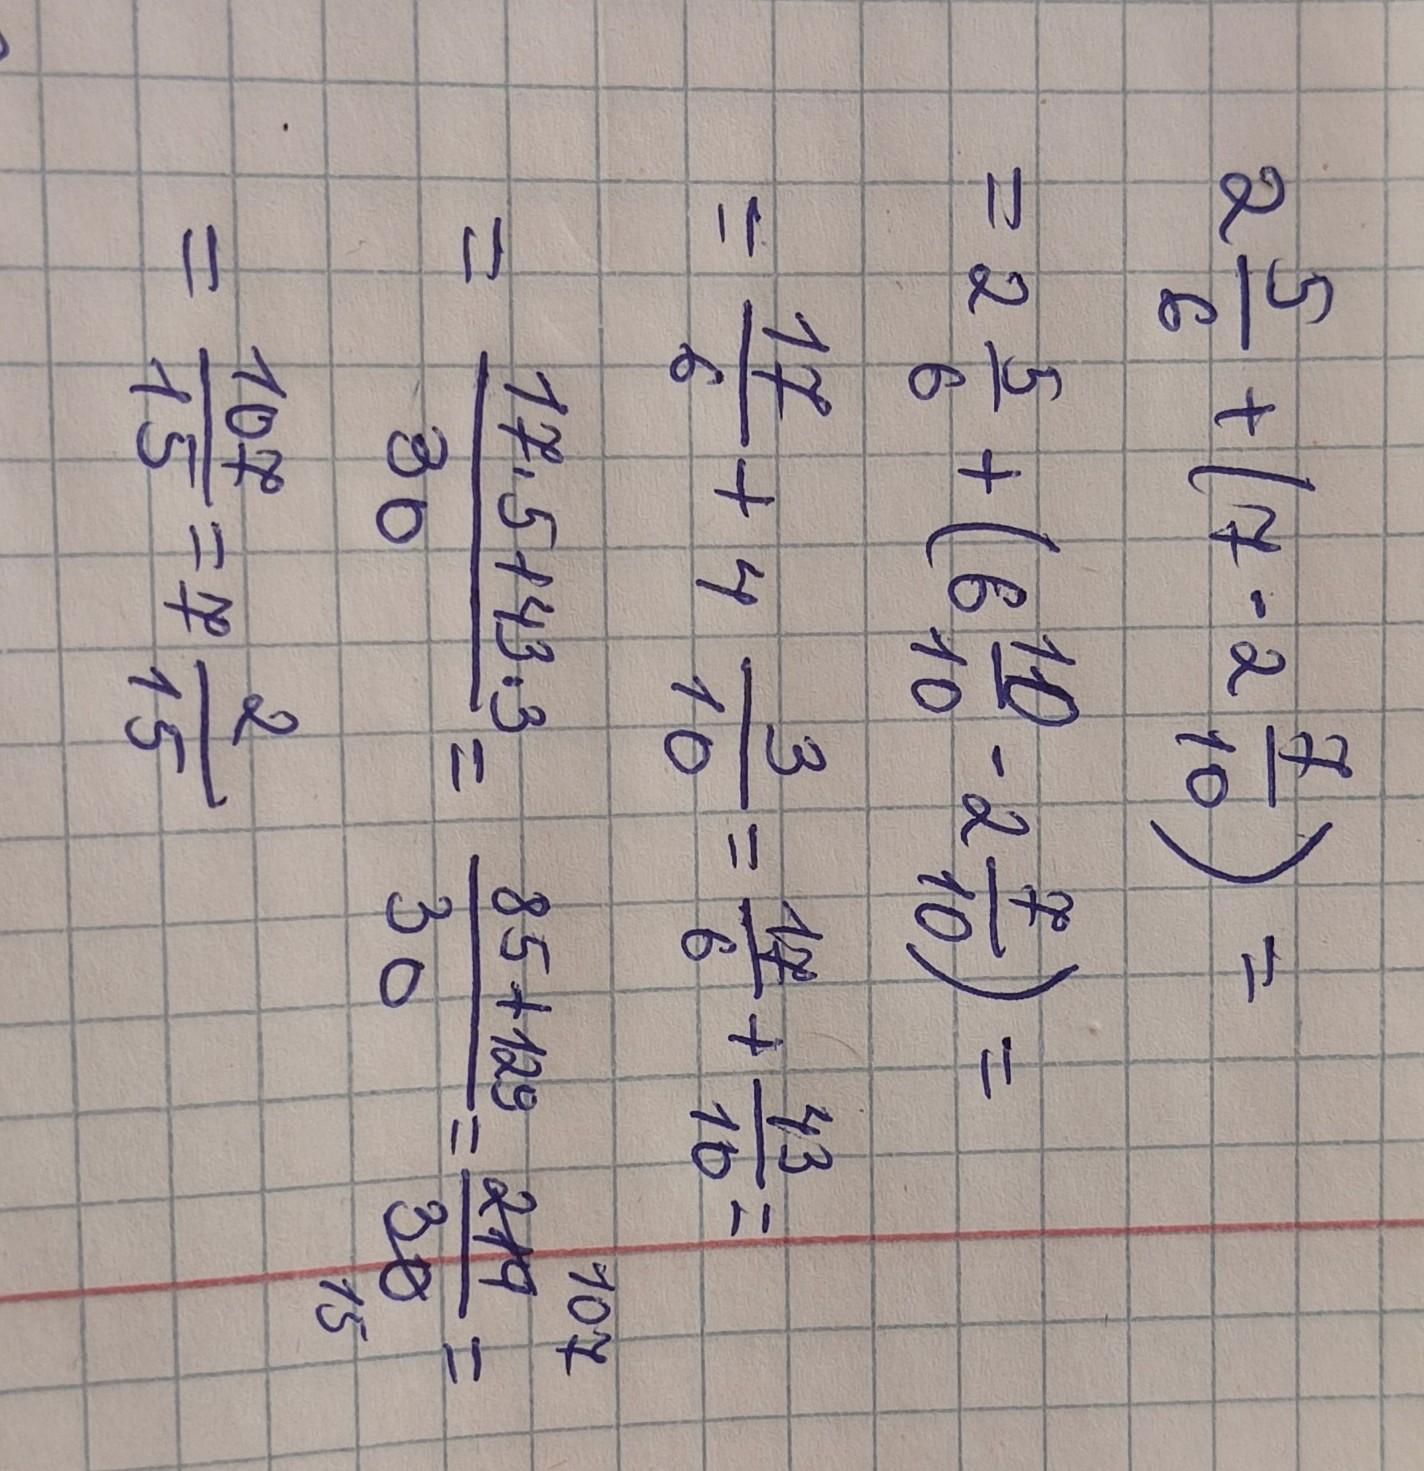 2 5/6 + (7 - 2 7/10) =
= 2 5/6 + (6 10/10 - 2 7/10) =
= 17/6 + 4 3/10 = 17/6 + 43/10 =
= (17·5+43·3)/30 = (85+129)/30 = 214/30 = 107 15
= 107/15 = 7 2/15